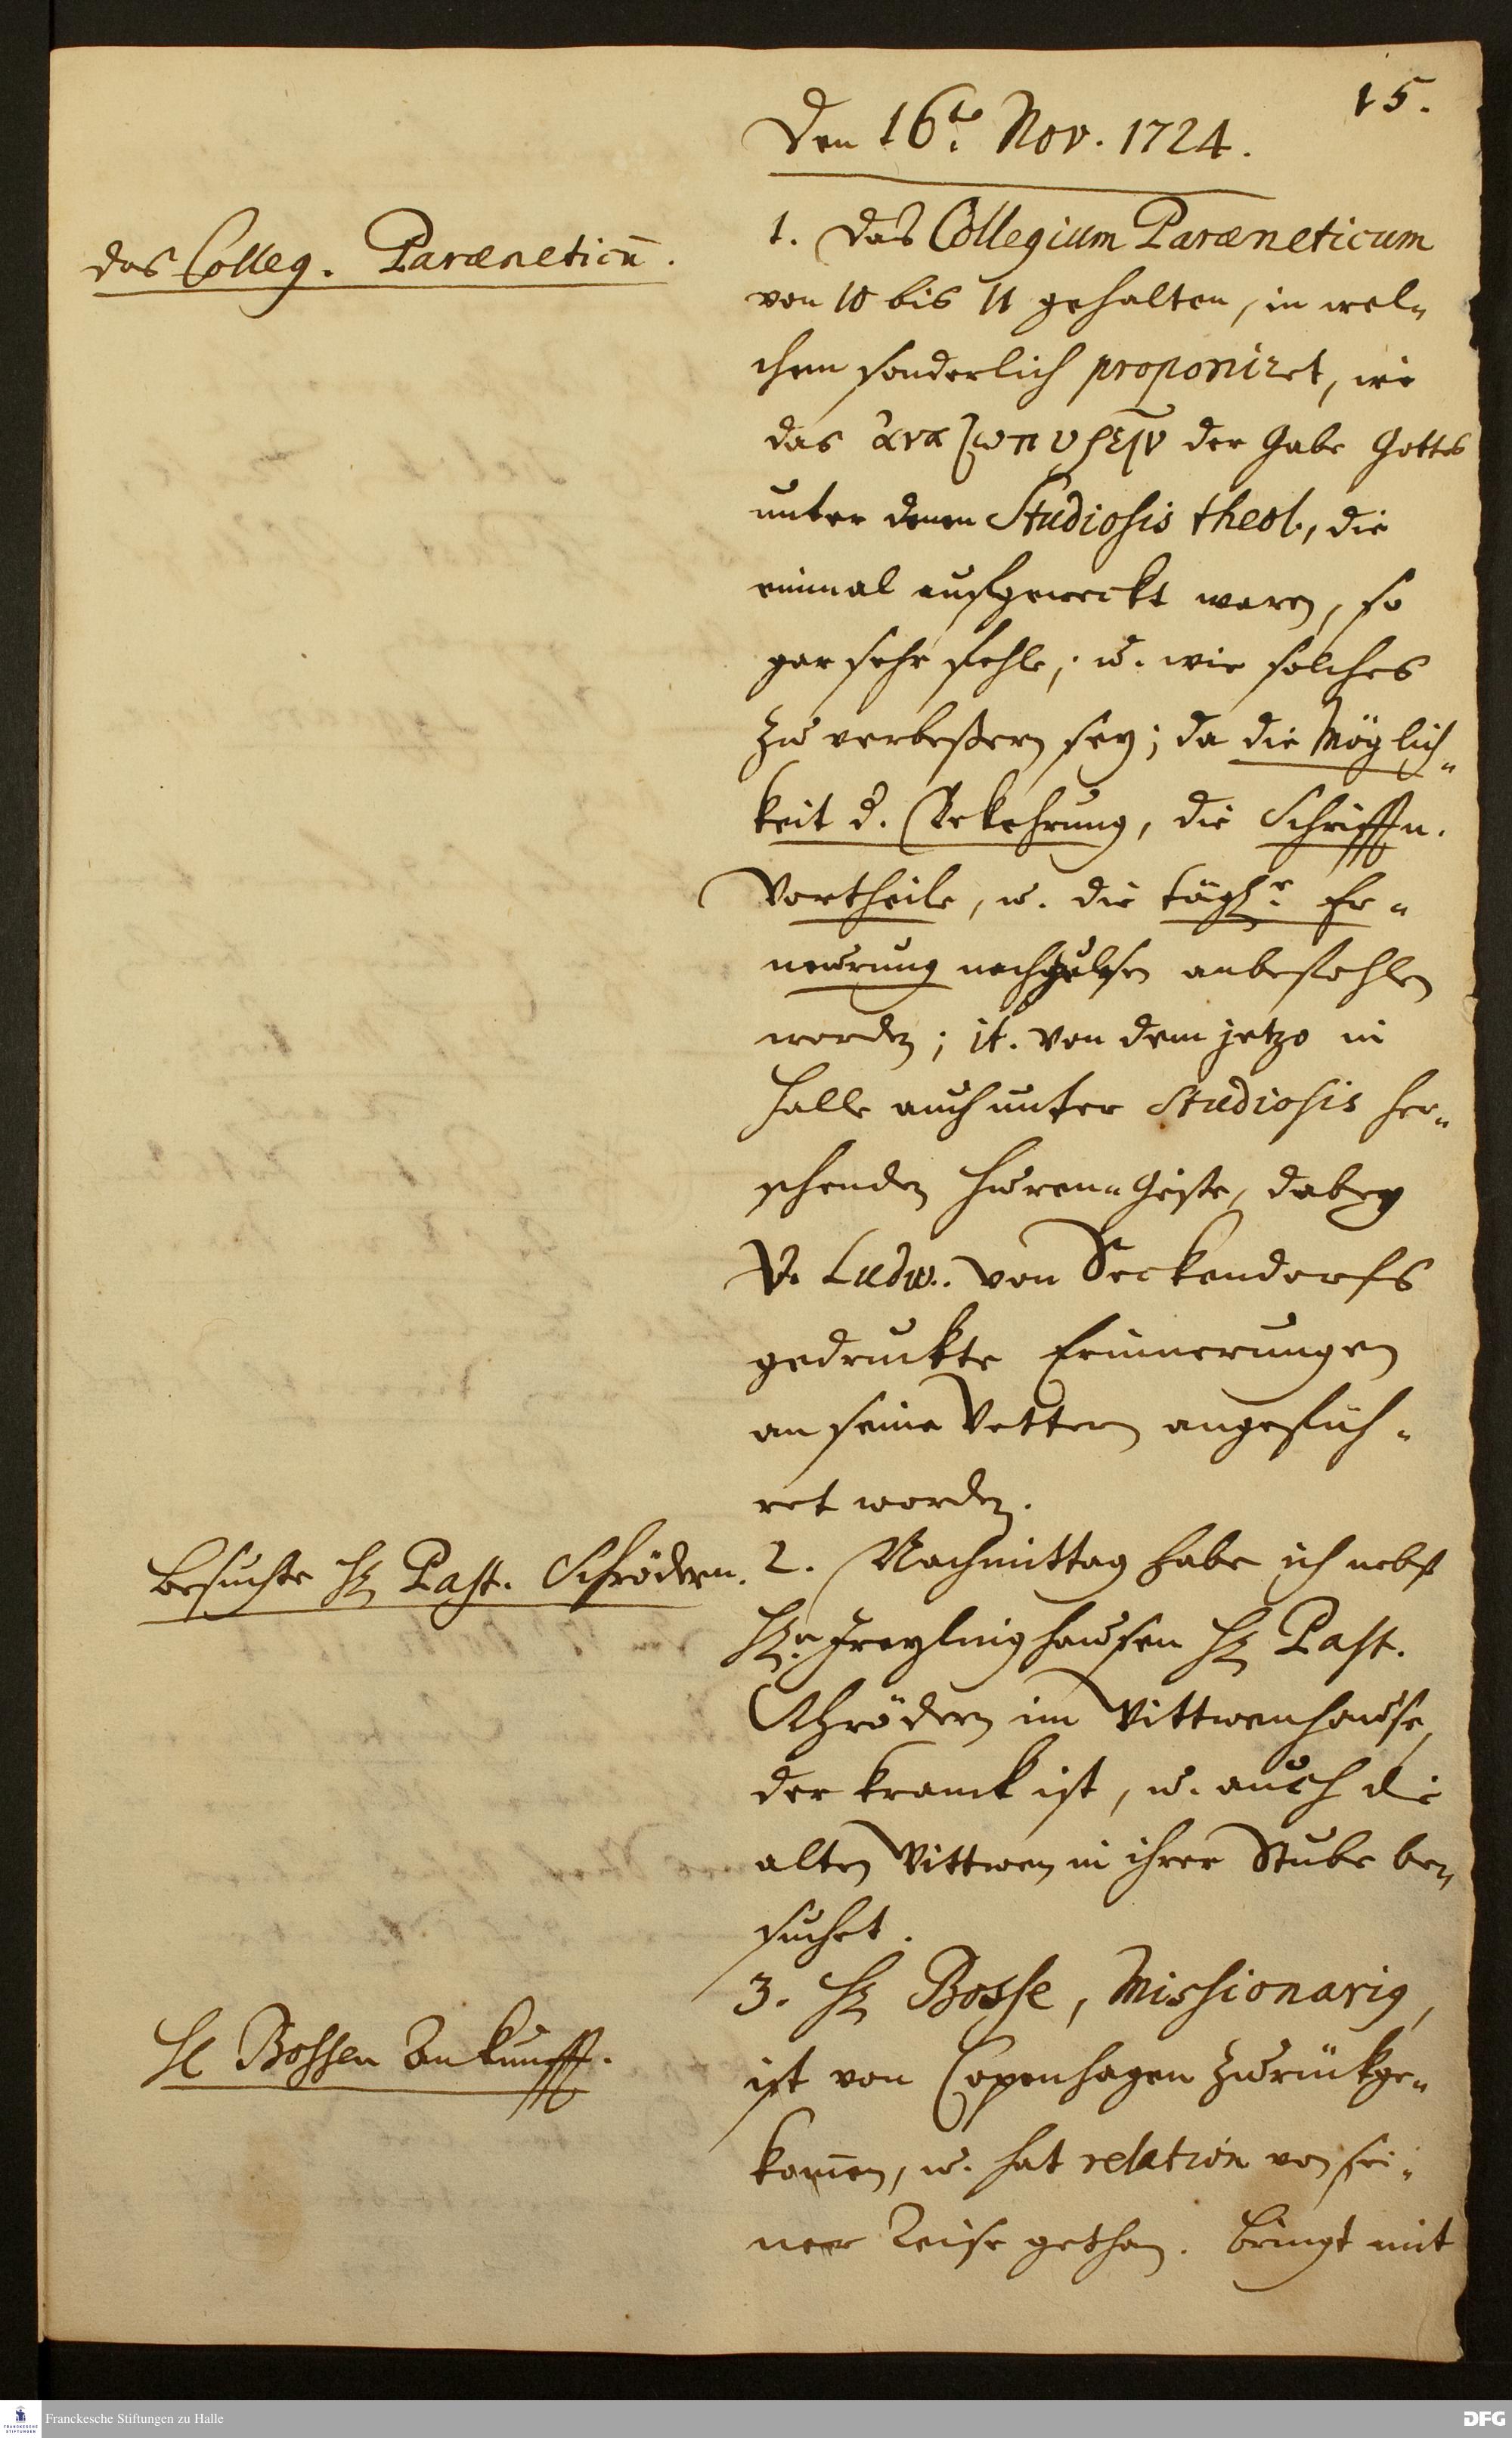 15.
Den 16te. Nov. 1724.
das Colleg. Paræneticū.
1. Das Collegium Paræneticum
von 10 bis 11 gehalten, in wel-
chem sonderlich proponiret, wie
das ἀναζωπυρεῖν der Gabe Gottes
unter denen Studiosis theol., die
einmal aufgeweckt waren, so
gar sehr fehle; u. wie solches
zu verbeßern sey; da die Möglich-
keit d. Bekehrung, die Schrifften.
Vortheile, u. die tägl. Er-
neurung nachzulesen anbefohlen
worden; it. von dem jetzo in
Halle auch unter Studiosis her-
schenden Huren-Geiste, dabey
V. Ludw. von Seckendorfs
gedruckte Erinnerungen
an seine Vettern angefüh-
ret worden.
Besuchte H. Past. Schrödern.
2. Nachmittag habe ich nebst
Hn. Freylinghausen H. Past.
Schrödern im Wittwenhause,
der kranck ist, u. auch die
alten Wittwen in ihrer Stube be-
suchet.
H Bossen Ankunfft.
3. H. Bosse, Missionarius,
ist von Copenhagen zurückge-
kom̄en, u. hat relation von sei-
ner Reise gethan. Bringt mit
Franckesche Stiftungen zu Halle
DFG